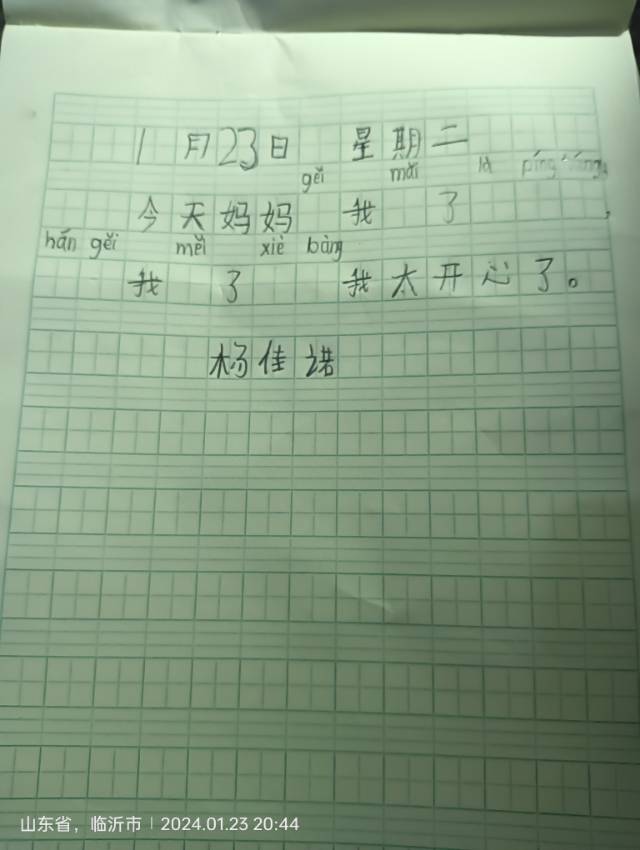 1月23日 星期二
今天妈妈gěi我mǎi了
hán gěi我měi了xiè bàng我太开心了。
杨佳诺
山东省，临沂市 | 2024.01.23 20:44